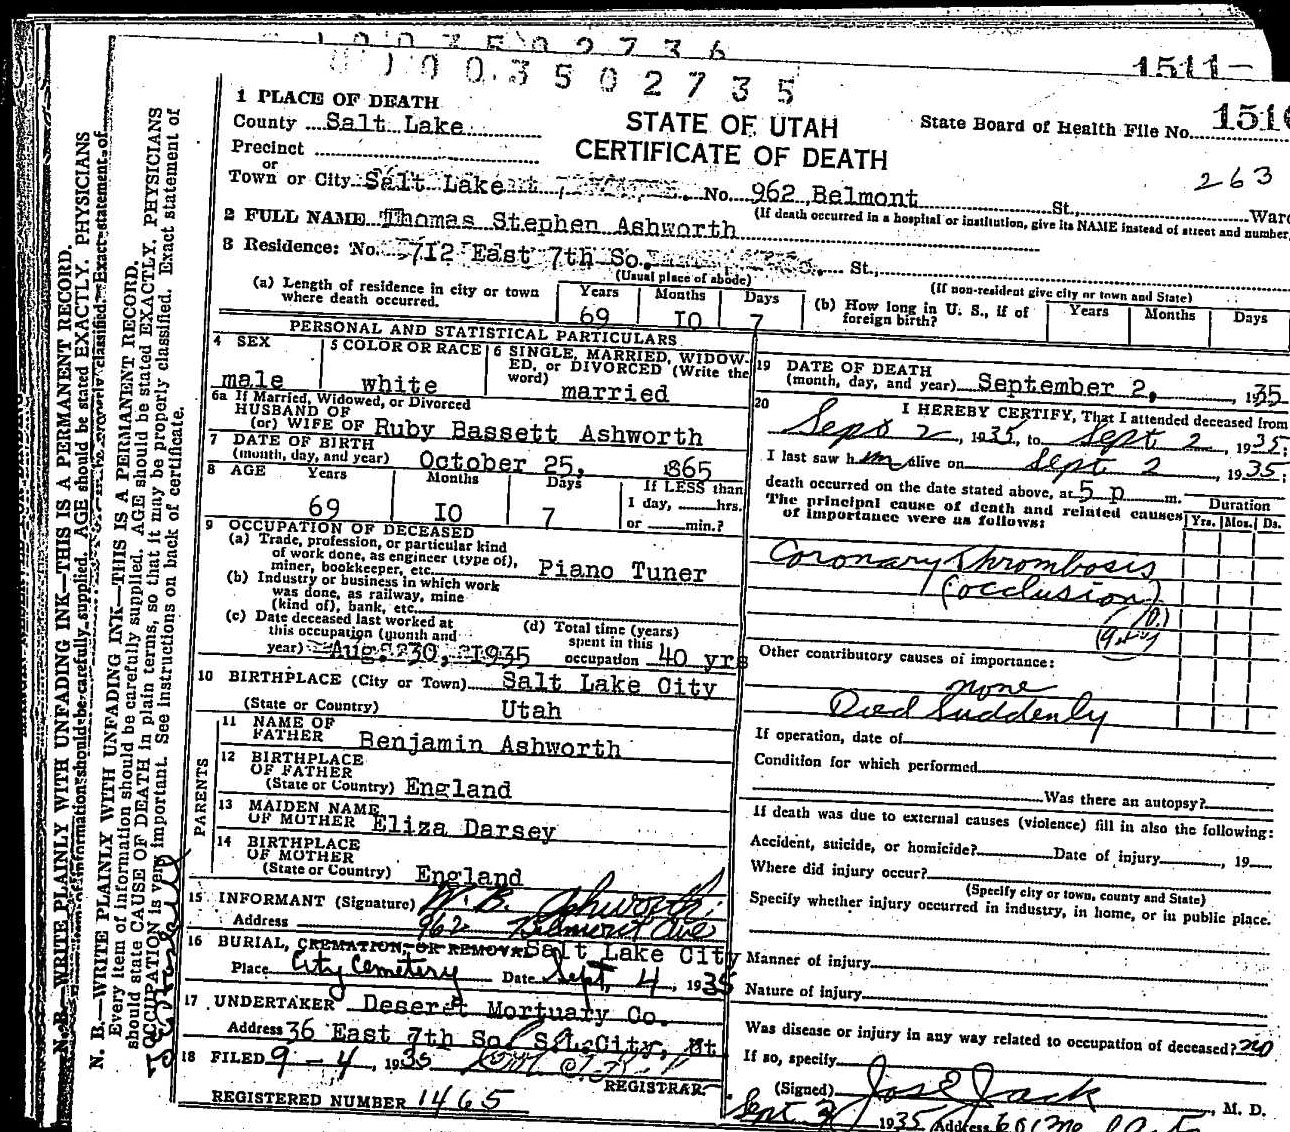 0003502736
0000.3502735
1511-
1 PLACE OF DEATH
County Salt Lake
STATE OF UTAH
CERTIFICATE OF DEATH
State Board of Health File No. 1510
Precinct
or
Town or City Salt Lake No. 962 Belmont St., Ward
263
(If death occurred in a hospital or institution, give its NAME instead of street and number
2 FULL NAME Thomas Stephen Ashworth
3 Residence: No. 712 East 7th So. St.,
(Usual place of abode)
(If non-resident give city or town and State)
(a) Length of residence in city or town where death occurred.
Years 69 Months IO Days 7
(b) How long in U. S., if of foreign birth?
Years Months Days
PERSONAL AND STATISTICAL PARTICULARS
4 SEX male
5 COLOR OR RACE white
6 SINGLE, MARRIED, WIDOWED, or DIVORCED (Write the word) married
6a If Married, Widowed, or Divorced
HUSBAND OF
(or) WIFE OF Ruby Bassett Ashworth
7 DATE OF BIRTH
(month, day, and year) October 25, 1865
8 AGE Years 69 Months IO Days 7
If LESS than
1 day, hrs.
or min.?
9 OCCUPATION OF DECEASED
(a) Trade, profession, or particular kind
of work done, as engineer (type of),
miner, bookkeeper, etc. Piano Tuner
(b) Industry or business in which work
was done, as railway, mine
(kind of), bank, etc.
(c) Date deceased last worked at
this occupation (month and
year) Aug. 30, 1935
(d) Total time (years)
spent in this
occupation 40 yrs
10 BIRTHPLACE (City or Town) Salt Lake City
(State or Country) Utah
PARENTS
11 NAME OF
FATHER Benjamin Ashworth
12 BIRTHPLACE
OF FATHER
(State or Country) England
13 MAIDEN NAME
OF MOTHER Eliza Darsey
14 BIRTHPLACE
OF MOTHER
(State or Country) England
15 INFORMANT (Signature) W. B. Ashworth
Address 962 Belmont Ave
16 BURIAL, CREMATION, OR REMOVAL Salt Lake City
Place City Cemetery Date Sept, 4, 1935
17 UNDERTAKER Deseret Mortuary Co.
Address 36 East 7th So. S.L.City, Ut
18 FILED 9-4, 1935
REGISTRAR
REGISTERED NUMBER 1465
19 DATE OF DEATH
(month, day, and year) September 2, 1935
20 I HEREBY CERTIFY, That I attended deceased from
Sept 2, 1935, to Sept 2, 1935;
I last saw him alive on Sept 2, 1935;
death occurred on the date stated above, at 5 p m.
The principal cause of death and related causes
of importance were as follows:
Duration
Yrs. Mos. Ds.
Coronary Thrombosis
(occlusion)
Other contributory causes of importance:
none
Died Suddenly
If operation, date of
Condition for which performed
Was there an autopsy?
If death was due to external causes (violence) fill in also the following:
Accident, suicide, or homicide? Date of injury, 19
Where did injury occur?
(Specify city or town, county and State)
Specify whether injury occurred in industry, in home, or in public place.
Manner of injury
Nature of injury
Was disease or injury in any way related to occupation of deceased? no
If so, specify
(Signed) Jos E Jack, M. D.
Sept 3 1935 Address
N. B.—WRITE PLAINLY WITH UNFADING INK—THIS IS A PERMANENT RECORD.
N. B.—WRITE PLAINLY WITH UNFADING INK—THIS IS A PERMANENT RECORD.
Every item of information should be carefully supplied. AGE should be stated EXACTLY. PHYSICIANS
should state CAUSE OF DEATH in plain terms, so that it may be properly classified. Exact statement of
OCCUPATION is very important. See instructions on back of certificate.